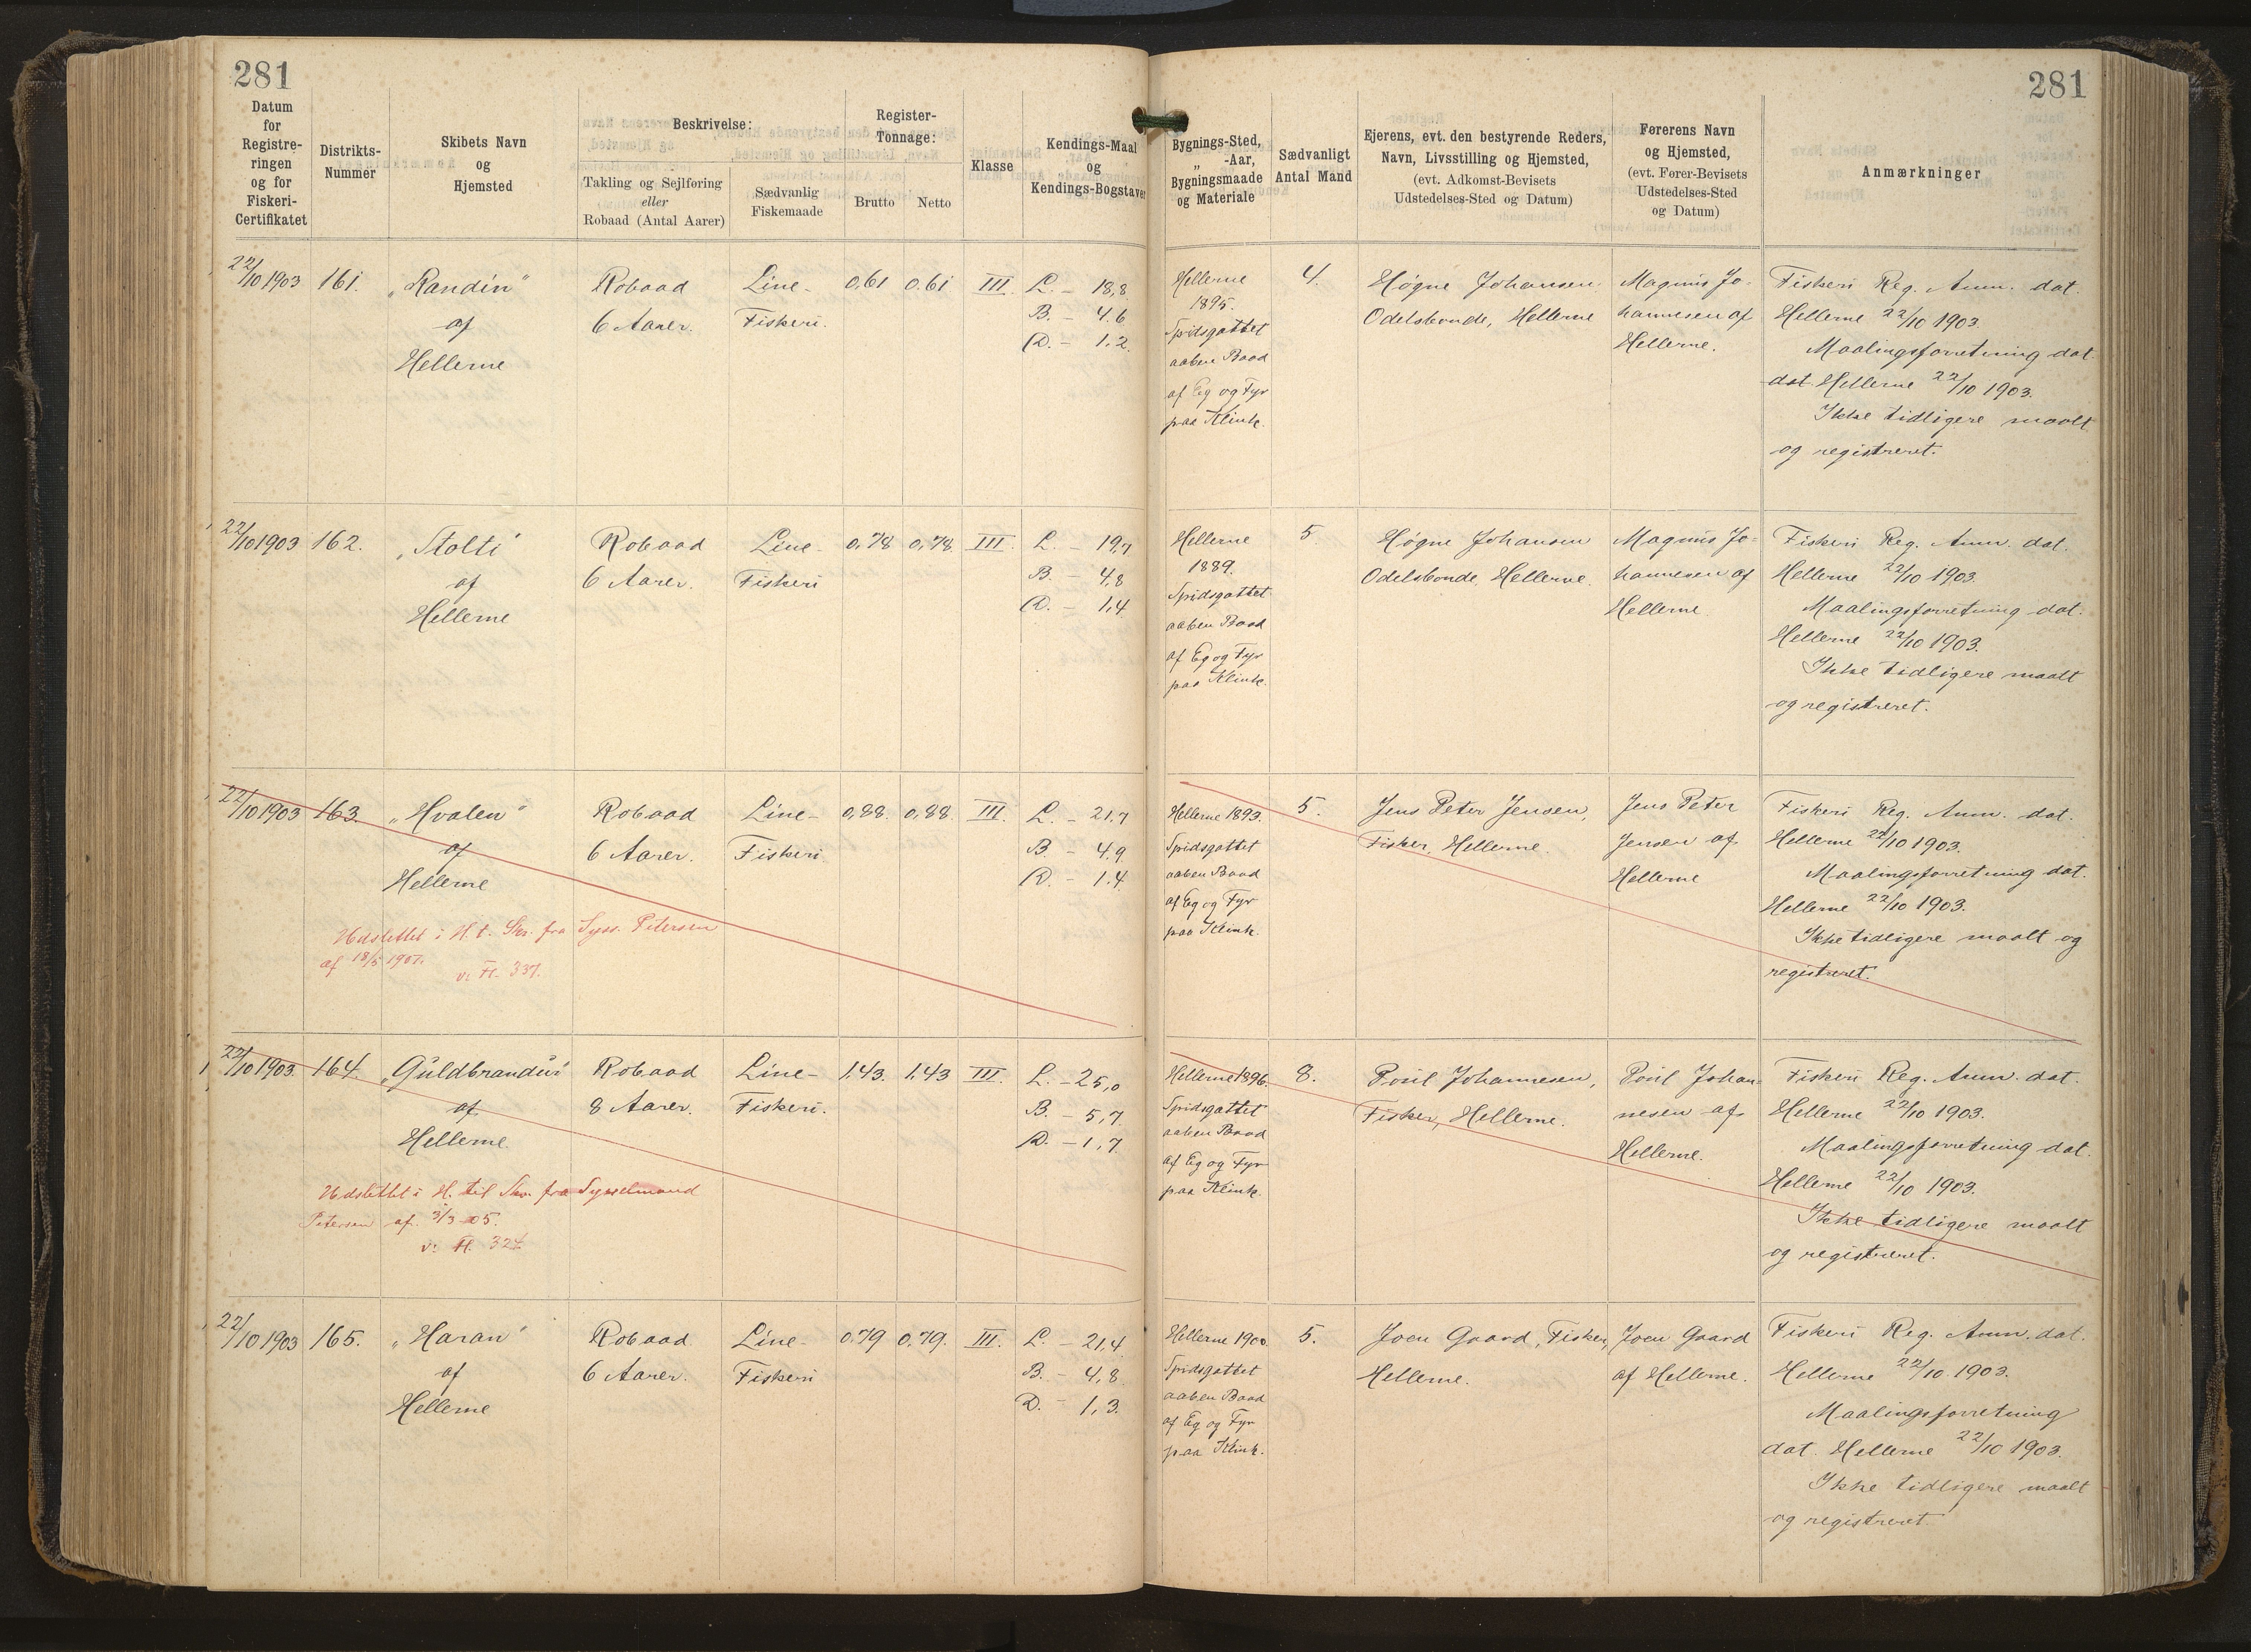 281
281
Datum
for
Registre-
ringen
og for
Fiskeri-
Certifikatet
Distrikts-
Nummer
Skibets Navn
og
Hjemsted
Beskrivelse:
Takling og Sejlføring
eller
Robaad (Antal Aarer)
Sædvanlig
Fiskemaade
Register-
Tonnage:
Brutto
Netto
Klasse
Kendings-Maal
og
Kendings-Bogstaver
Bygnings-Sted,
„ -Aar,
Bygningsmaade
og Materiale
Sædvanligt
Antal Mand
Ejerens, evt. den bestyrende Reders,
Navn, Livsstilling og Hjemsted,
(evt. Adkomst-Bevisets
Udstedelses-Sted og Datum)
Førerens Navn
og Hjemsted,
(evt. Fører-Bevisets
Udstedelses-Sted
og Datum)
Anmærkninger
22/10 1903
161.
„Randin“
af
Hellerne
Robaad
6 Aarer.
Line-
Fiskeri.
0,61
0.61
III.
L. - 18,8
B. - 4.6
D. - 1.2.
Hellerne
1895.
Spidsgattet
aaben Baad
af Eg og Fyr
paa Klink.
4.
Høgne Johansen.
Odelsbonde, Hellerne
Magnus Jo-
hannesen af
Hellerne.
Fiskeri Reg. Anm. dat.
Hellerne 22/10 1903.
Maalingsforretning dat.
dat. Hellerne 22/10 1903.
Ikke tidligere maalt
og registreret.
22/10 1903
162.
„Stolti“
af
Hellerne
Robaad
6 Aarer.
Line-
Fiskeri
0,78
0,78
III.
L. - 19,7
B. - 4,8
D. - 1,4
Hellerne
1889.
Spidsgattet
aaben Baad
af Eg og Fyr
paa Klink.
5.
Høgne Johansen
Odelsbonde, Hellerne.
Magnus Jo-
hannesen af
Hellerne.
Fiskeri Reg. Anm. dat.
Hellerne 22/10 1903.
Maalingsforretning dat.
Hellerne 22/10 1903.
Ikke tidligere maalt
og registreret.
22/10 1903
163.
„Hvalen“
af
Hellerne
Robaad
6 Aarer.
Line-
Fiskeri.
0,88.
0,88.
III.
L. - 21.7
B. - 4.9
D. - 1.4
Hellerne 1893.
Spidsgattet
aaben Baad
af Eg og Fyr
paa Klink.
5.
Jens Peter Jensen,
Fisker, Hellerne.
Jens Peter
Jensen af
Hellerne
Fiskeri Reg. Anm. dat.
Hellerne 22/10 1903.
Maalingsforretning dat.
Hellerne 22/10 1903.
Ikke tidligere maalt og
registreret.
Udslettet i H. t. Skr. fra Syss. Petersen
af 18/5 1907.
v. Fl. 337.
22/10 1903.
164.
„Guldbrandur“
af
Hellerne.
Robaad
8 Aarer.
Line-
Fiskeri.
1,43.
1,43
III.
L. - 25,0
B. - 5,7
D. - 1,7
Hellerne 1896.
Spidsgattet
aaben Baad
af Eg og Fyr
paa Klink.
8.
Poul Johannesen,
Fisker, Hellerne.
Poul Johan-
nesen af
Hellerne.
Fiskeri Reg. Anm. dat.
Hellerne 22/10 1903.
Maalingsforretning dat.
Hellerne 22/10 1903.
Ikke tidligere maalt
og registreret.
Udslettet i H. til Skr. fra Sysselmand
Petersen af 3/3 05.
v. Fl. 324.
22/10 1903
165.
„Haran“
af
Hellerne
Robaad
6 Aarer.
Line-
Fiskeri
0.79
0,79.
III.
L. - 21,4
B. - 4,8.
D. - 1,3.
Hellerne 1900.
Spidsgattet
aaben Baad
af Eg og Fyr
paa Klink.
5.
Joen Gaard, Fisker,
Hellerne.
Joen Gaard
af Hellerne.
Fiskeri Reg. Anm. dat.
Hellerne 22/10 1903.
Maalingsforretning
dat. Hellerne 22/10 1903.
Ikke tidligere maalt
og registreret.